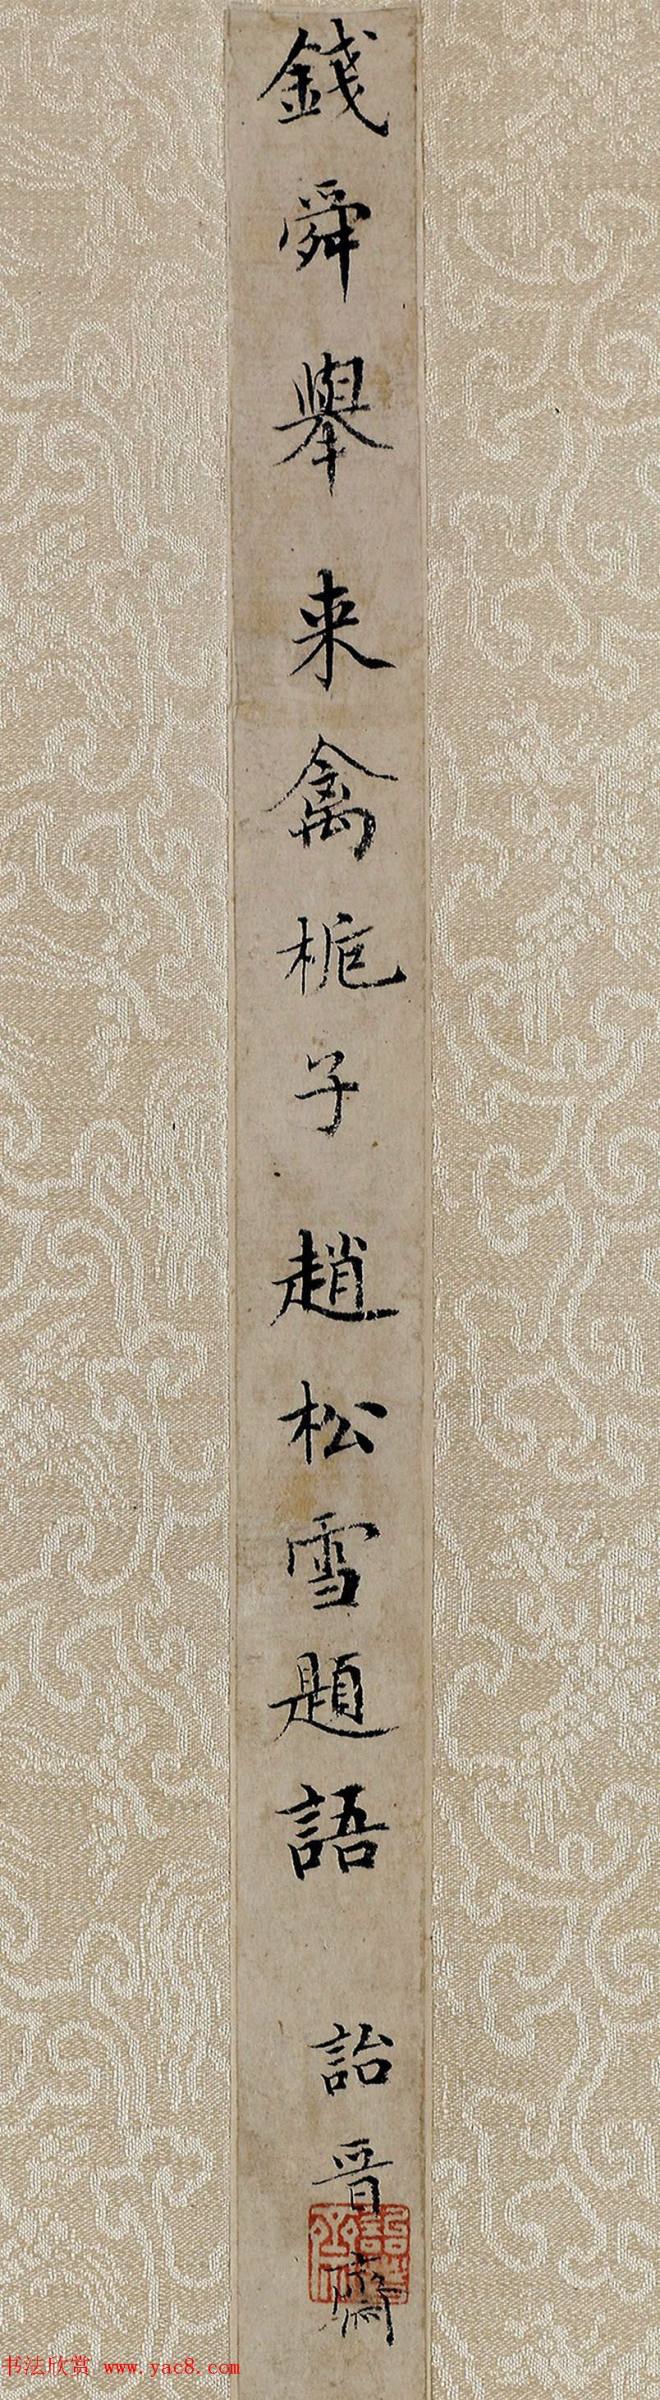 錢舜舉来禽栀子趙松雪題語
詒晉齋
詒晉齋
书法欣赏 www.yac8.com